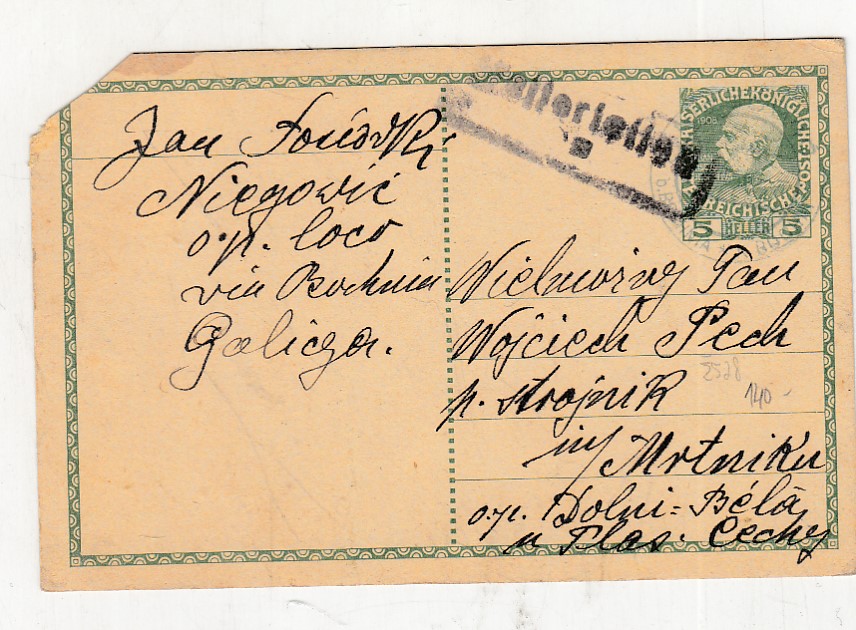 Jan
Niegowić
o.p. loco
via Bochnia
Galicya.
KAISERLICHEKÖNIGLICHE POST
1908
ÖSTERREICHISCHE
5 HELLER 5
Wielmożny Pan
Wojciech Pech
p. strojnik
w Mrtniku
o.p. Dolni-Bélá
u Plas. Čechy
2528
140-